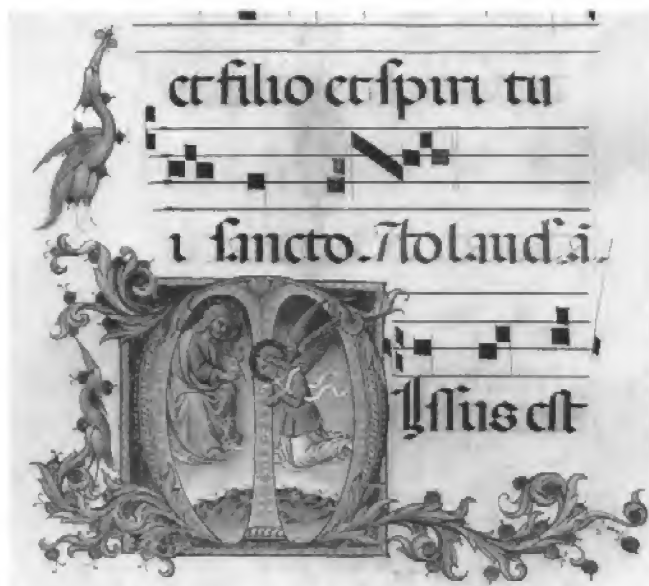 et filio et spiri tu
i sancto. Ad laud. ā.
MIssus est